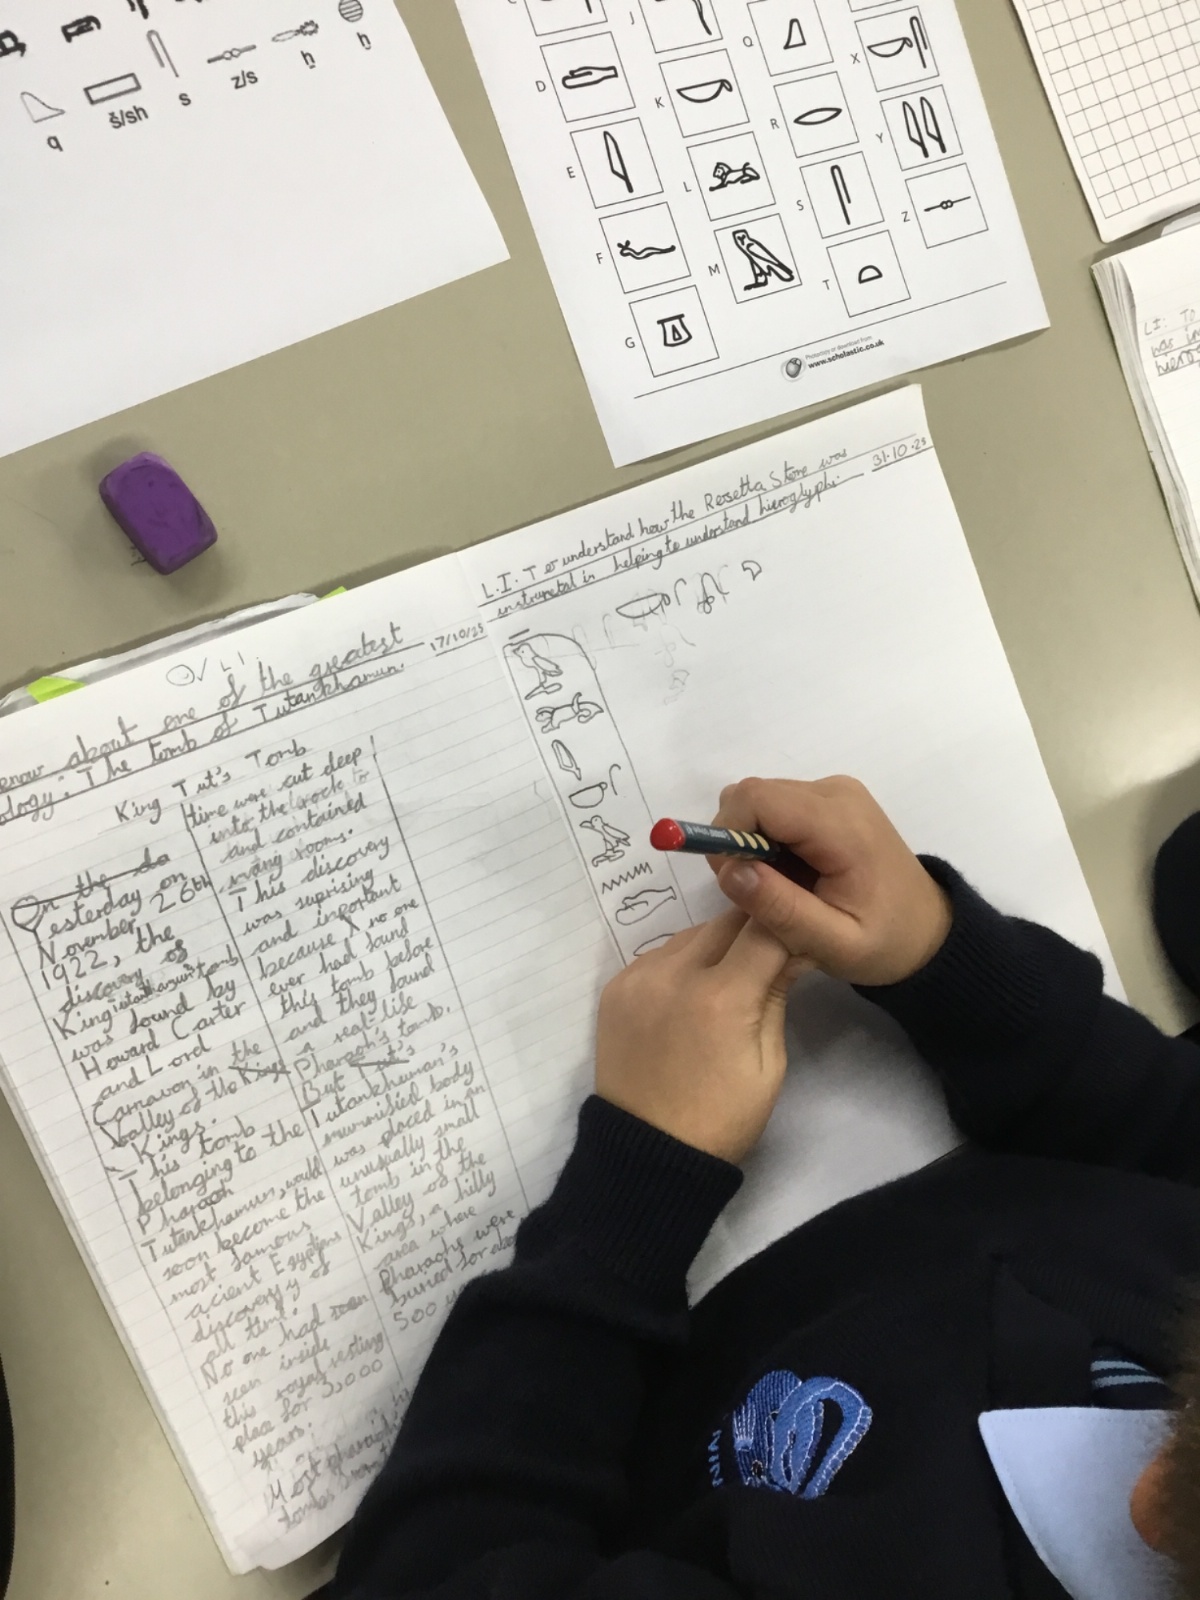 q
š/sh
s
z/s
ẖ
ḥ
D
E
F
G
J
K
L
M
Q
R
S
T
X
Y
Z
Photocopy or download from
www.scholastic.co.uk
31.10.25
L.I. To understand how the Rosetta Stone was
instrumetal in helping to understand hieroglyphs.
L.I: To
was in
hiero
17/10/25
L.I.
know about one of the greatest
ology: The tomb of Tutankhamun.
King Tut's Tomb
On the da
Yesterday on
November 26th
1922, the
discovery of
King tutankhamun's tomb
was found by
Howard Carter
and Lord
Carnavon in the
Valley of the Kings
Kings.
This tomb
belonging to the
Pharaoh
Tutankhamun, would
soon become the
most famous
acient Egyptians
discovery of
all time.
No one had seen
seen inside
this royal resting
place for 3,000
years!
Most pharaoh's
tombs from
time were cut deep
into the rock to
and contained
many rooms.
This discovery
was suprising
and important
because X no one
ever had found
this tomb before
and they found
a real-life
Pharaoh's tomb.
But Tut's
Tutankhamun's
mummified body
was placed in an
unusually small
tomb in the
Valley of the
Kings, a hilly
area where
Pharaohs were
buried for about
500